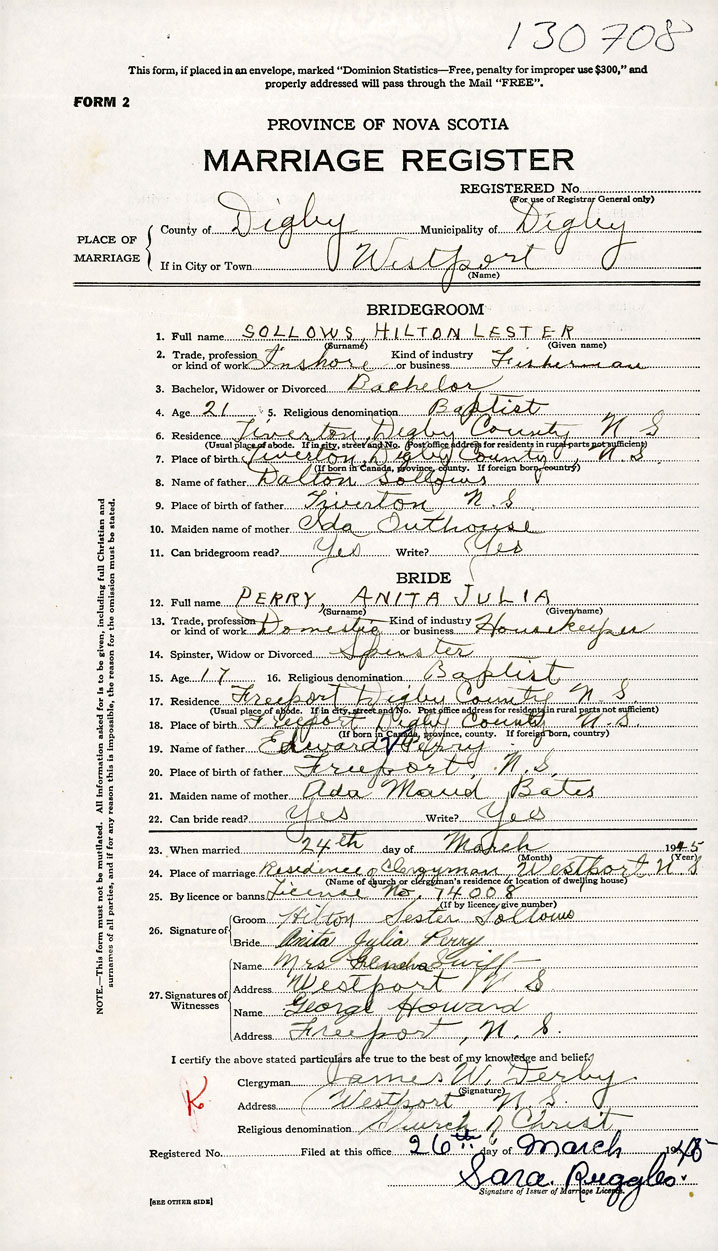 130708
This form, if placed in an envelope, marked "Dominion Statistics—Free, penalty for improper use $300," and
properly addressed will pass through the Mail "FREE".
FORM 2
PROVINCE OF NOVA SCOTIA
MARRIAGE REGISTER
REGISTERED No.
(For use of Registrar General only)
PLACE OF MARRIAGE
County of Digby Municipality of Digby
If in City or Town Westport
(Name)
BRIDEGROOM
1. Full name SOLLOWS, HILTON LESTER
(Surname) (Given name)
2. Trade, profession or kind of work Inshore Kind of industry or business Fisherman
3. Bachelor, Widower or Divorced Bachelor
4. Age 21 5. Religious denomination Baptist
6. Residence Tiverton, Digby County N S
(Usual place of abode. If in city, street and No. Post office address for residents in rural parts not sufficient)
7. Place of birth Tiverton, Digby County, N.S.
(If born in Canada, province, county. If foreign born, country)
8. Name of father Dalton Sollows
9. Place of birth of father Tiverton N.S.
10. Maiden name of mother Ada Outhouse
11. Can bridegroom read? Yes Write? Yes
BRIDE
12. Full name PERRY, ANITA JULIA
(Surname) (Given name)
13. Trade, profession or kind of work Domestic Kind of industry or business Housekeeper
14. Spinster, Widow or Divorced Spinster
15. Age 17 16. Religious denomination Baptist
17. Residence Freeport Digby County N S.
(Usual place of abode. If in city, street and No. Post office address for residents in rural parts not sufficient)
18. Place of birth Freeport Digby County N.S
(If born in Canada, province, county. If foreign born, country)
19. Name of father Edward V Perry
20. Place of birth of father Freeport, N.S.
21. Maiden name of mother Ada Maud Bates
22. Can bride read? Yes Write? Yes
23. When married 24th day of March 1945
(Month) (Year)
24. Place of marriage Residence of Clergyman Westport N S
(Name of church or clergyman's residence or location of dwelling house)
25. By licence or banns License No. 74008
(If by licence, give number)
26. Signature of
Groom Hilton Lester Sollows
Bride Anita Julia Perry
27. Signatures of Witnesses
Name Mrs Swift
Address Westport N S
Name George Howard
Address Freeport, N.S.
I certify the above stated particulars are true to the best of my knowledge and belief.
Clergyman James W. Derby
(Signature)
Address Westport N.S.
Religious denomination Church of Christ
K
Registered No. Filed at this office 26th day of March 1945
Sara. Ruggles.
Signature of Issuer of Marriage Licence.
[SEE OTHER SIDE]
NOTE.—This form must not be mutilated. All information asked for is to be given, including full Christian and
surnames of all parties, and if for any reason this is impossible, the reason for the omission must be stated.